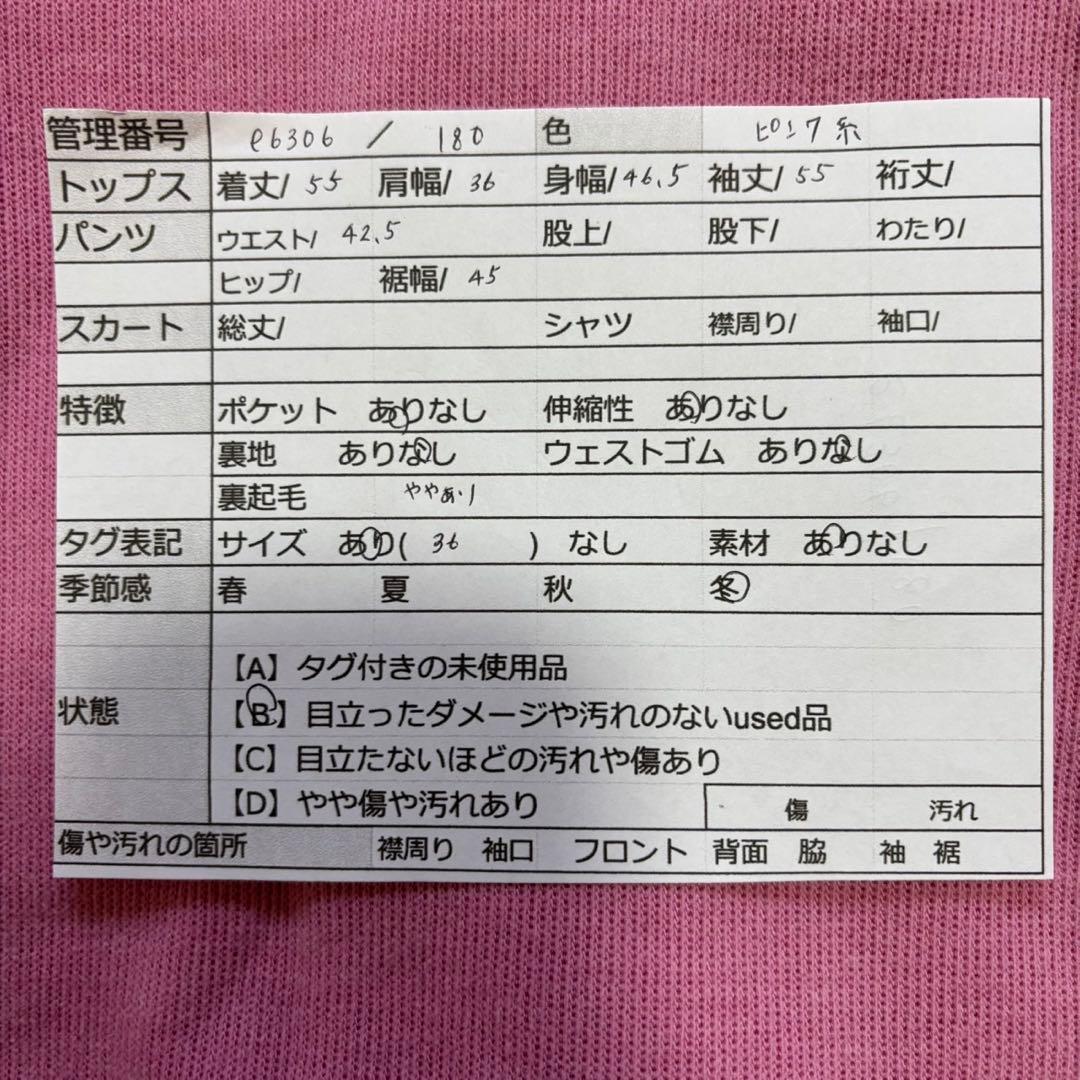 管理番号 e6306 / 180 色 ピンク系
トップス 着丈/ 55 肩幅/ 36 身幅/46.5 袖丈/ 55 裄丈/
パンツ ウエスト/ 42.5 股上/ 股下/ わたり/
ヒップ/ 裾幅/ 45
スカート 総丈/ シャツ 襟周り/ 袖口/
特徴 ポケット ありなし 伸縮性 ありなし
裏地 ありなし ウェストゴム ありなし
裏起毛 ややあり
タグ表記 サイズ あり( 36 ) なし 素材 ありなし
季節感 春 夏 秋 冬
【A】タグ付きの未使用品
状態 【B】目立ったダメージや汚れのないused品
【C】目立たないほどの汚れや傷あり
【D】やや傷や汚れあり 傷 汚れ
傷や汚れの箇所 襟周り 袖口 フロント 背面 脇 袖 裾